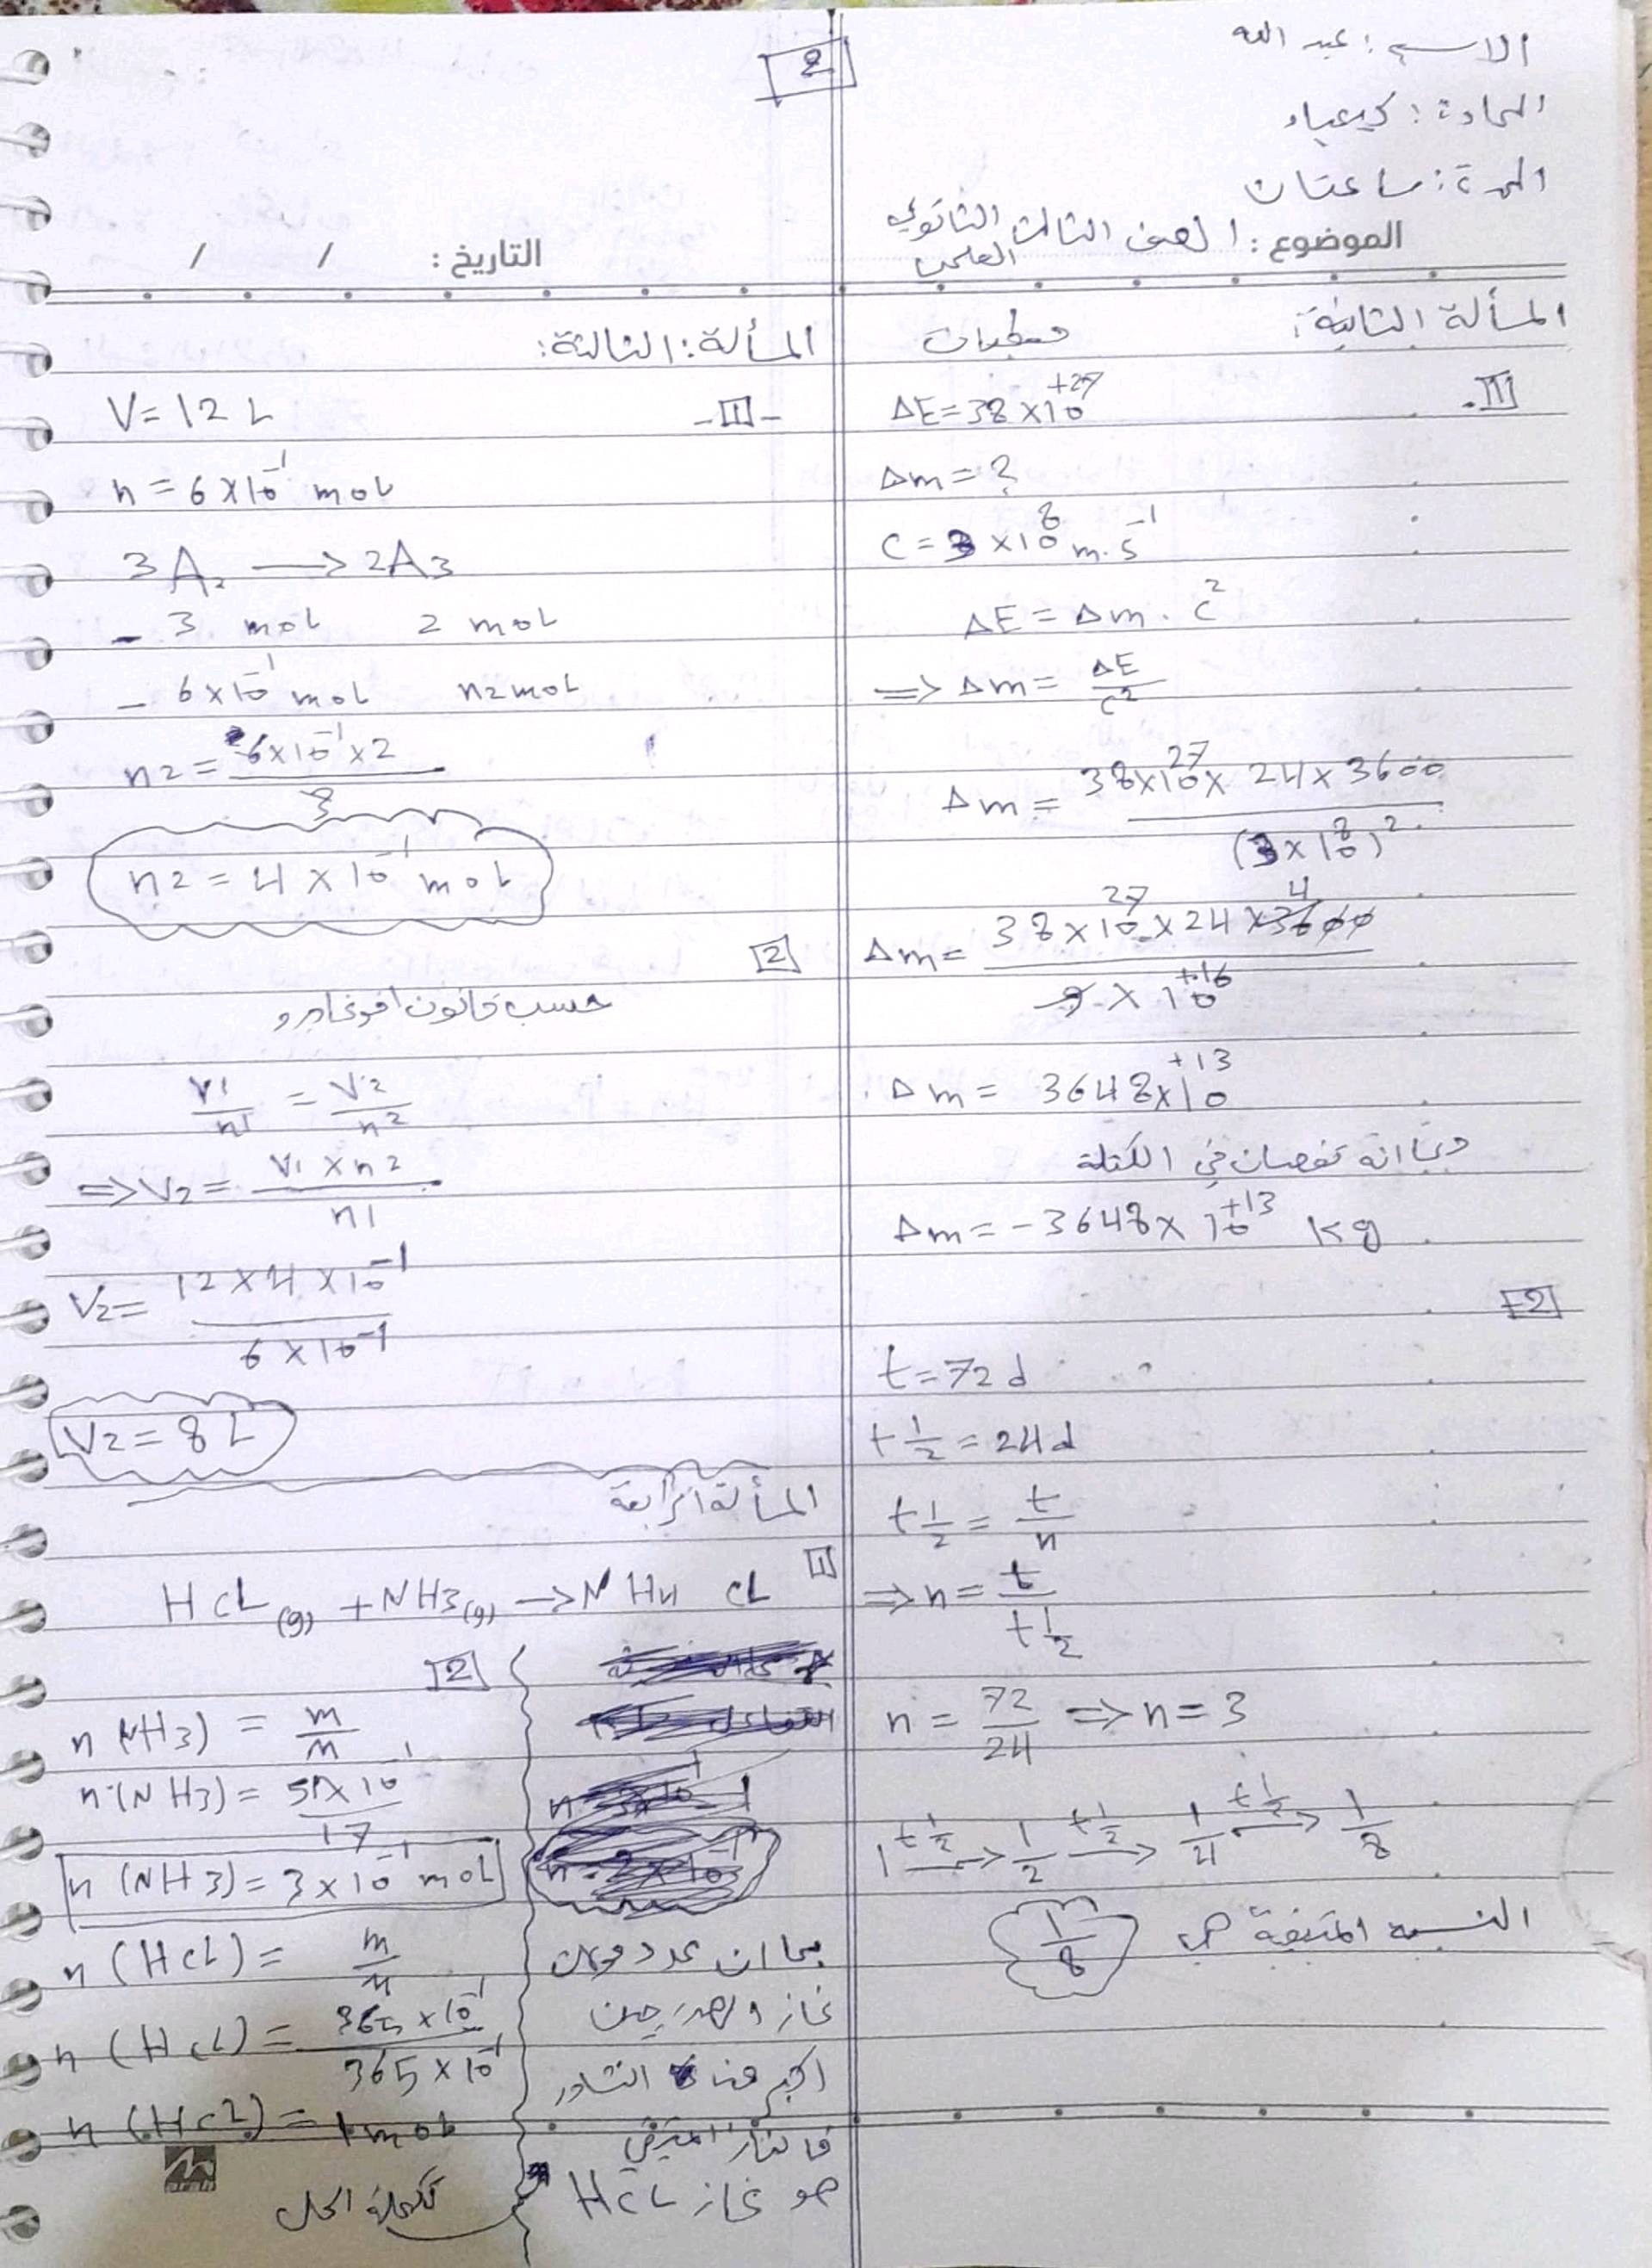 2
الاسم : عبد الله
المادة : كيمياء
المدة : ساعتان
الموضوع : الصف الثالث الثانوي العلمي
التاريخ : / /
المسألة الثانية :
معطيات
1
ΔE = 38 × 10^+27
Δm = ?
C = 3 × 10^8 m.s^-1
ΔE = Δm . c^2
=> Δm = ΔE / c^2
Δm = 38×10^27 × 24 × 3600 / (3 × 10^8)^2
Δm = 38 × 10^27 × 24 × 3600 / 9 × 10^+16
4
Δm = 3648 × 10^+13
وبما انه نقصان في الكتلة
Δm = - 3648 × 10^+13 kg
2
t = 72 d
t 1/2 = 24 d
t 1/2 = t / n
=> n = t / t 1/2
n = 72 / 24 => n = 3
1 —t 1/2→ 1/2 —t 1/2→ 1/4 —t 1/2→ 1/8
النسبة المتبقية هي 1/8
المسألة : الثالثة :
- 1 -
V = 12 L
n = 6 × 10^-1 mol
3 A2 → 2 A3
- 3 mol 2 mol
- 6 × 10^-1 mol n2 mol
n2 = 6 × 10^-1 × 2 / 3
n2 = 4 × 10^-1 mol
2
حسب قانون افوغادرو
V1 / n1 = V2 / n2
=> V2 = V1 × n2 / n1
V2 = 12 × 4 × 10^-1 / 6 × 10^-1
V2 = 8 L
المسألة الرابعة
1
HCL (g) + NH3 (g) → NH4 CL
2
n (NH3) = m / M
n (NH3) = 51 × 10^-1 / 17
n (NH3) = 3 × 10^-1 mol
n (HCL) = m / M
n (HCL) = 365 × 10^-1 / 365 × 10^-1
n (HCL) = 1 mol
تكملة الحل
بما ان عدد مولات
غاز
اكبر من النشادر
فالغاز المتبقي
هو غاز HCL